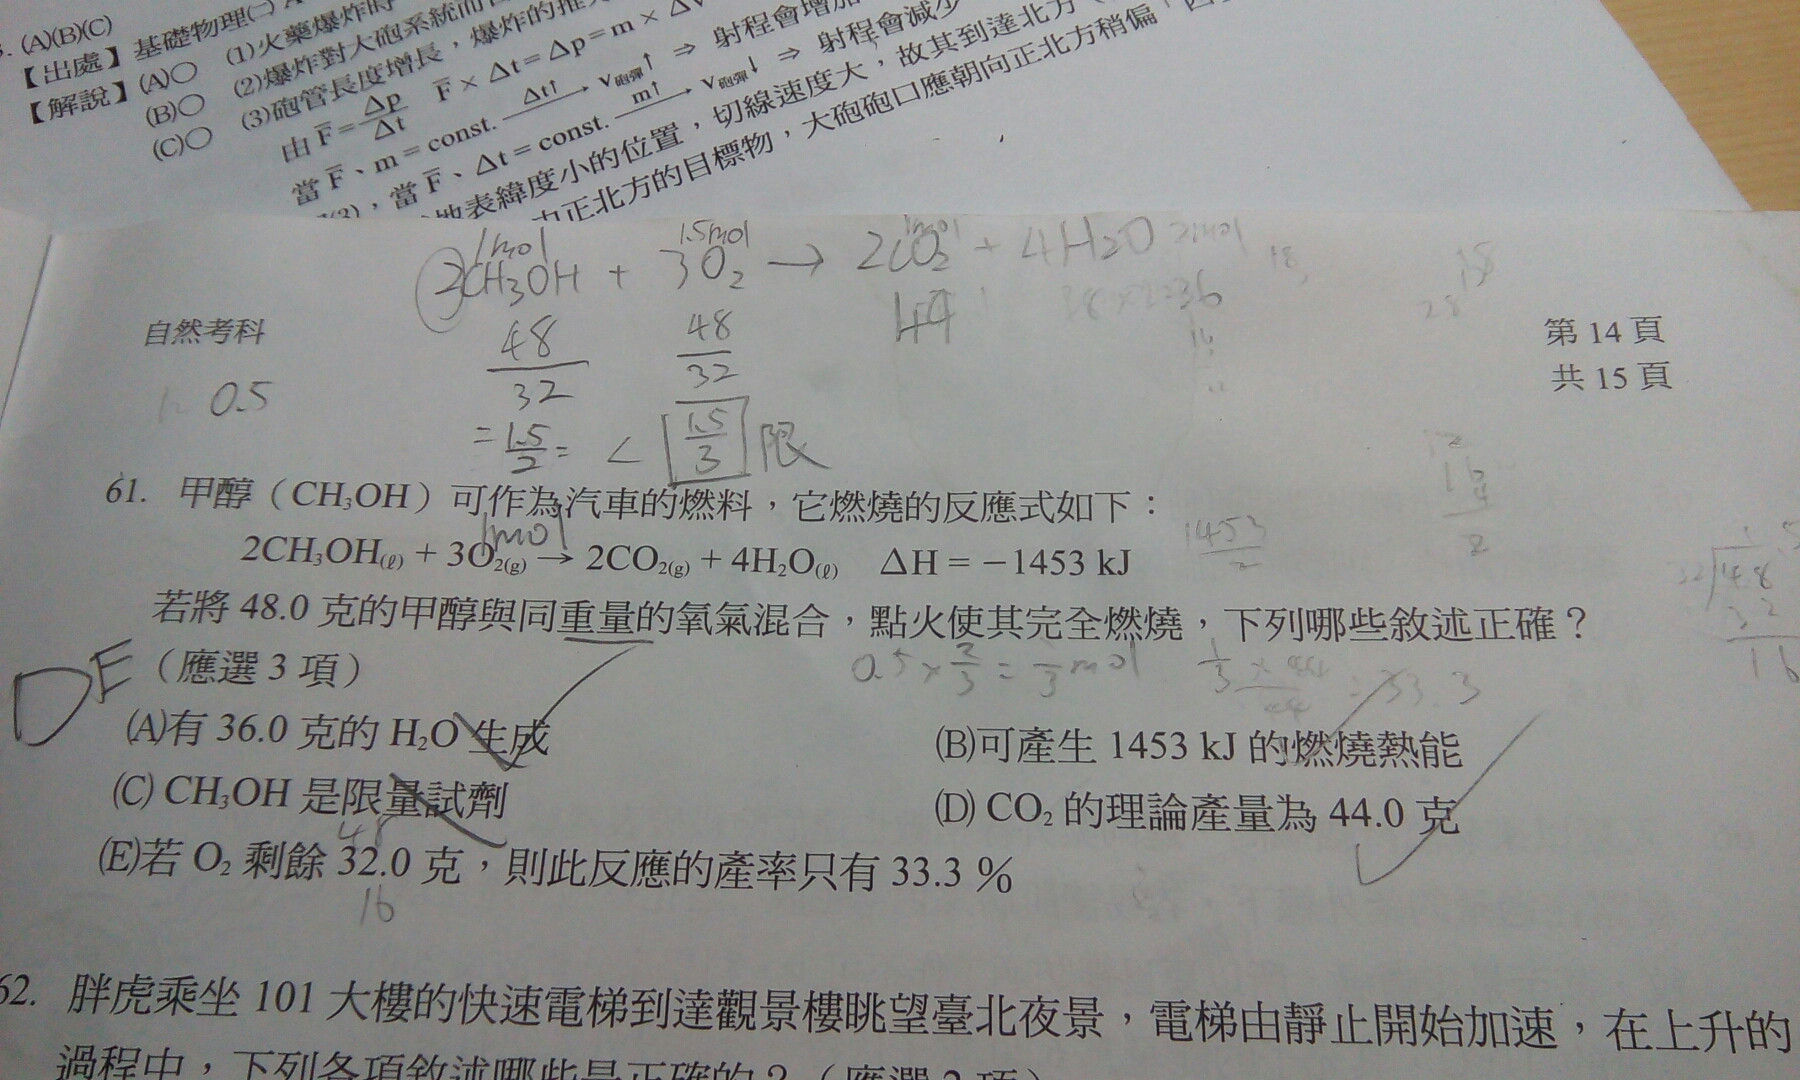 (A)(B)(C)
【出處】基礎物理㈡
【解說】(A)○ (1)火藥爆炸時
(B)○ (2)爆炸對大砲系統而言
(C)○ (3)砲管長度增長，爆炸的推
由 F̅ = Δp/Δt F̅ × Δt = Δp = m × Δv
當 F̅、m = const. Δt↑ → v砲彈↑ ⇒ 射程會增加
，當 F̅、Δt = const. m↑ → v砲彈↓ ⇒ 射程會減少
地表緯度小的位置，切線速度大，故其到達北方
正北方的目標物，大砲砲口應朝向正北方稍偏
1mol 1.5mol 1mol 2mol
2CH₃OH + 3O₂ → 2CO₂ + 4H₂O
48/32 48/32 44 18×2=36
= 1.5/2 = < 1.5/3 限
0.5
自然考科
第 14 頁
共 15 頁
61. 甲醇（CH₃OH）可作為汽車的燃料，它燃燒的反應式如下：
1mol
1453/2
2CH₃OH(ℓ) + 3O₂(g) → 2CO₂(g) + 4H₂O(ℓ) ΔH = −1453 kJ
若將 48.0 克的甲醇與同重量的氧氣混合，點火使其完全燃燒，下列哪些敘述正確？
DE
（應選 3 項）
0.5 × 2/3 = 1/3 mol
33.3
(A)有 36.0 克的 H₂O 生成
(B)可產生 1453 kJ 的燃燒熱能
(C) CH₃OH 是限量試劑
(D) CO₂ 的理論產量為 44.0 克
48
(E)若 O₂ 剩餘 32.0 克，則此反應的產率只有 33.3 %
16
62. 胖虎乘坐 101 大樓的快速電梯到達觀景樓眺望臺北夜景，電梯由靜止開始加速，在上升的
過程中，下列各項敘述哪些是正確的？（應選 2 項）